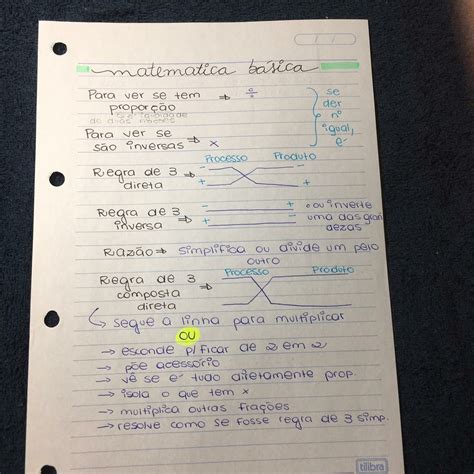 matematica básica
Para ver se tem ⇒ ÷ se
proporção der
Para ver se n°
são inversas ⇒ x igual, é
Processo Produto
Regra de 3 ⇒ - -
direta + +
Regra de 3 ⇒ - + ou inverte
inversa - + uma das gran
dezas
Razão ⇒ simplifica ou divide um pelo
outro
Processo Produto
Regra de 3
composta ⇒
direta
segue a linha para multiplicar
ou
→ esconde p/ficar de 2 em 2
→ põe acessório
→ vê se é tudo diretamente prop.
→ isola o que tem x
→ multiplica outras frações
→ resolve como se fosse regra de 3 simp.
tilibra